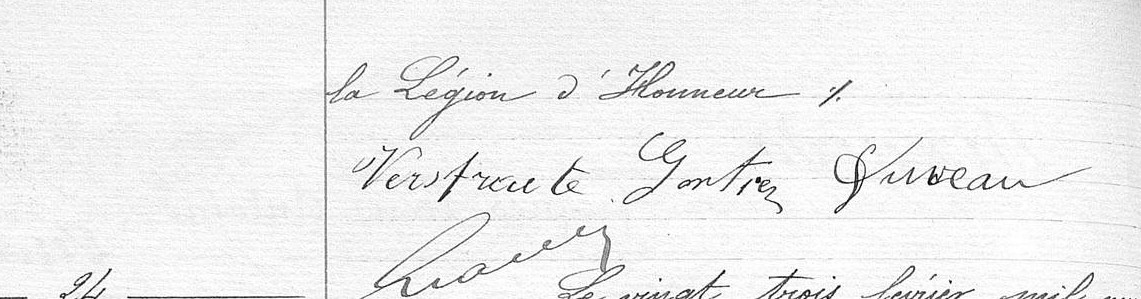 la Légion d'Honneur ./.
Verstraete Gontrez Duveau
24 Le vingt trois février mil